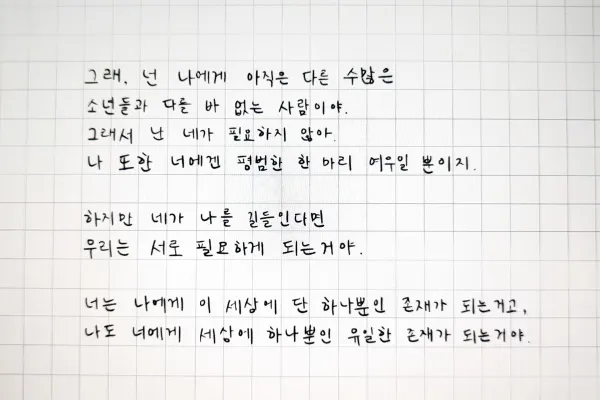 그래, 넌 나에게 아직은 다른 수많은
소년들과 다를 바 없는 사람이야.
그래서 난 네가 필요하지 않아.
나 또한 너에겐 평범한 한 마리 여우일 뿐이지.
하지만 네가 나를 길들인다면
우리는 서로 필요하게 되는거야.
너는 나에게 이 세상에 단 하나뿐인 존재가 되는거고,
나도 너에게 세상에 하나뿐인 유일한 존재가 되는거야.